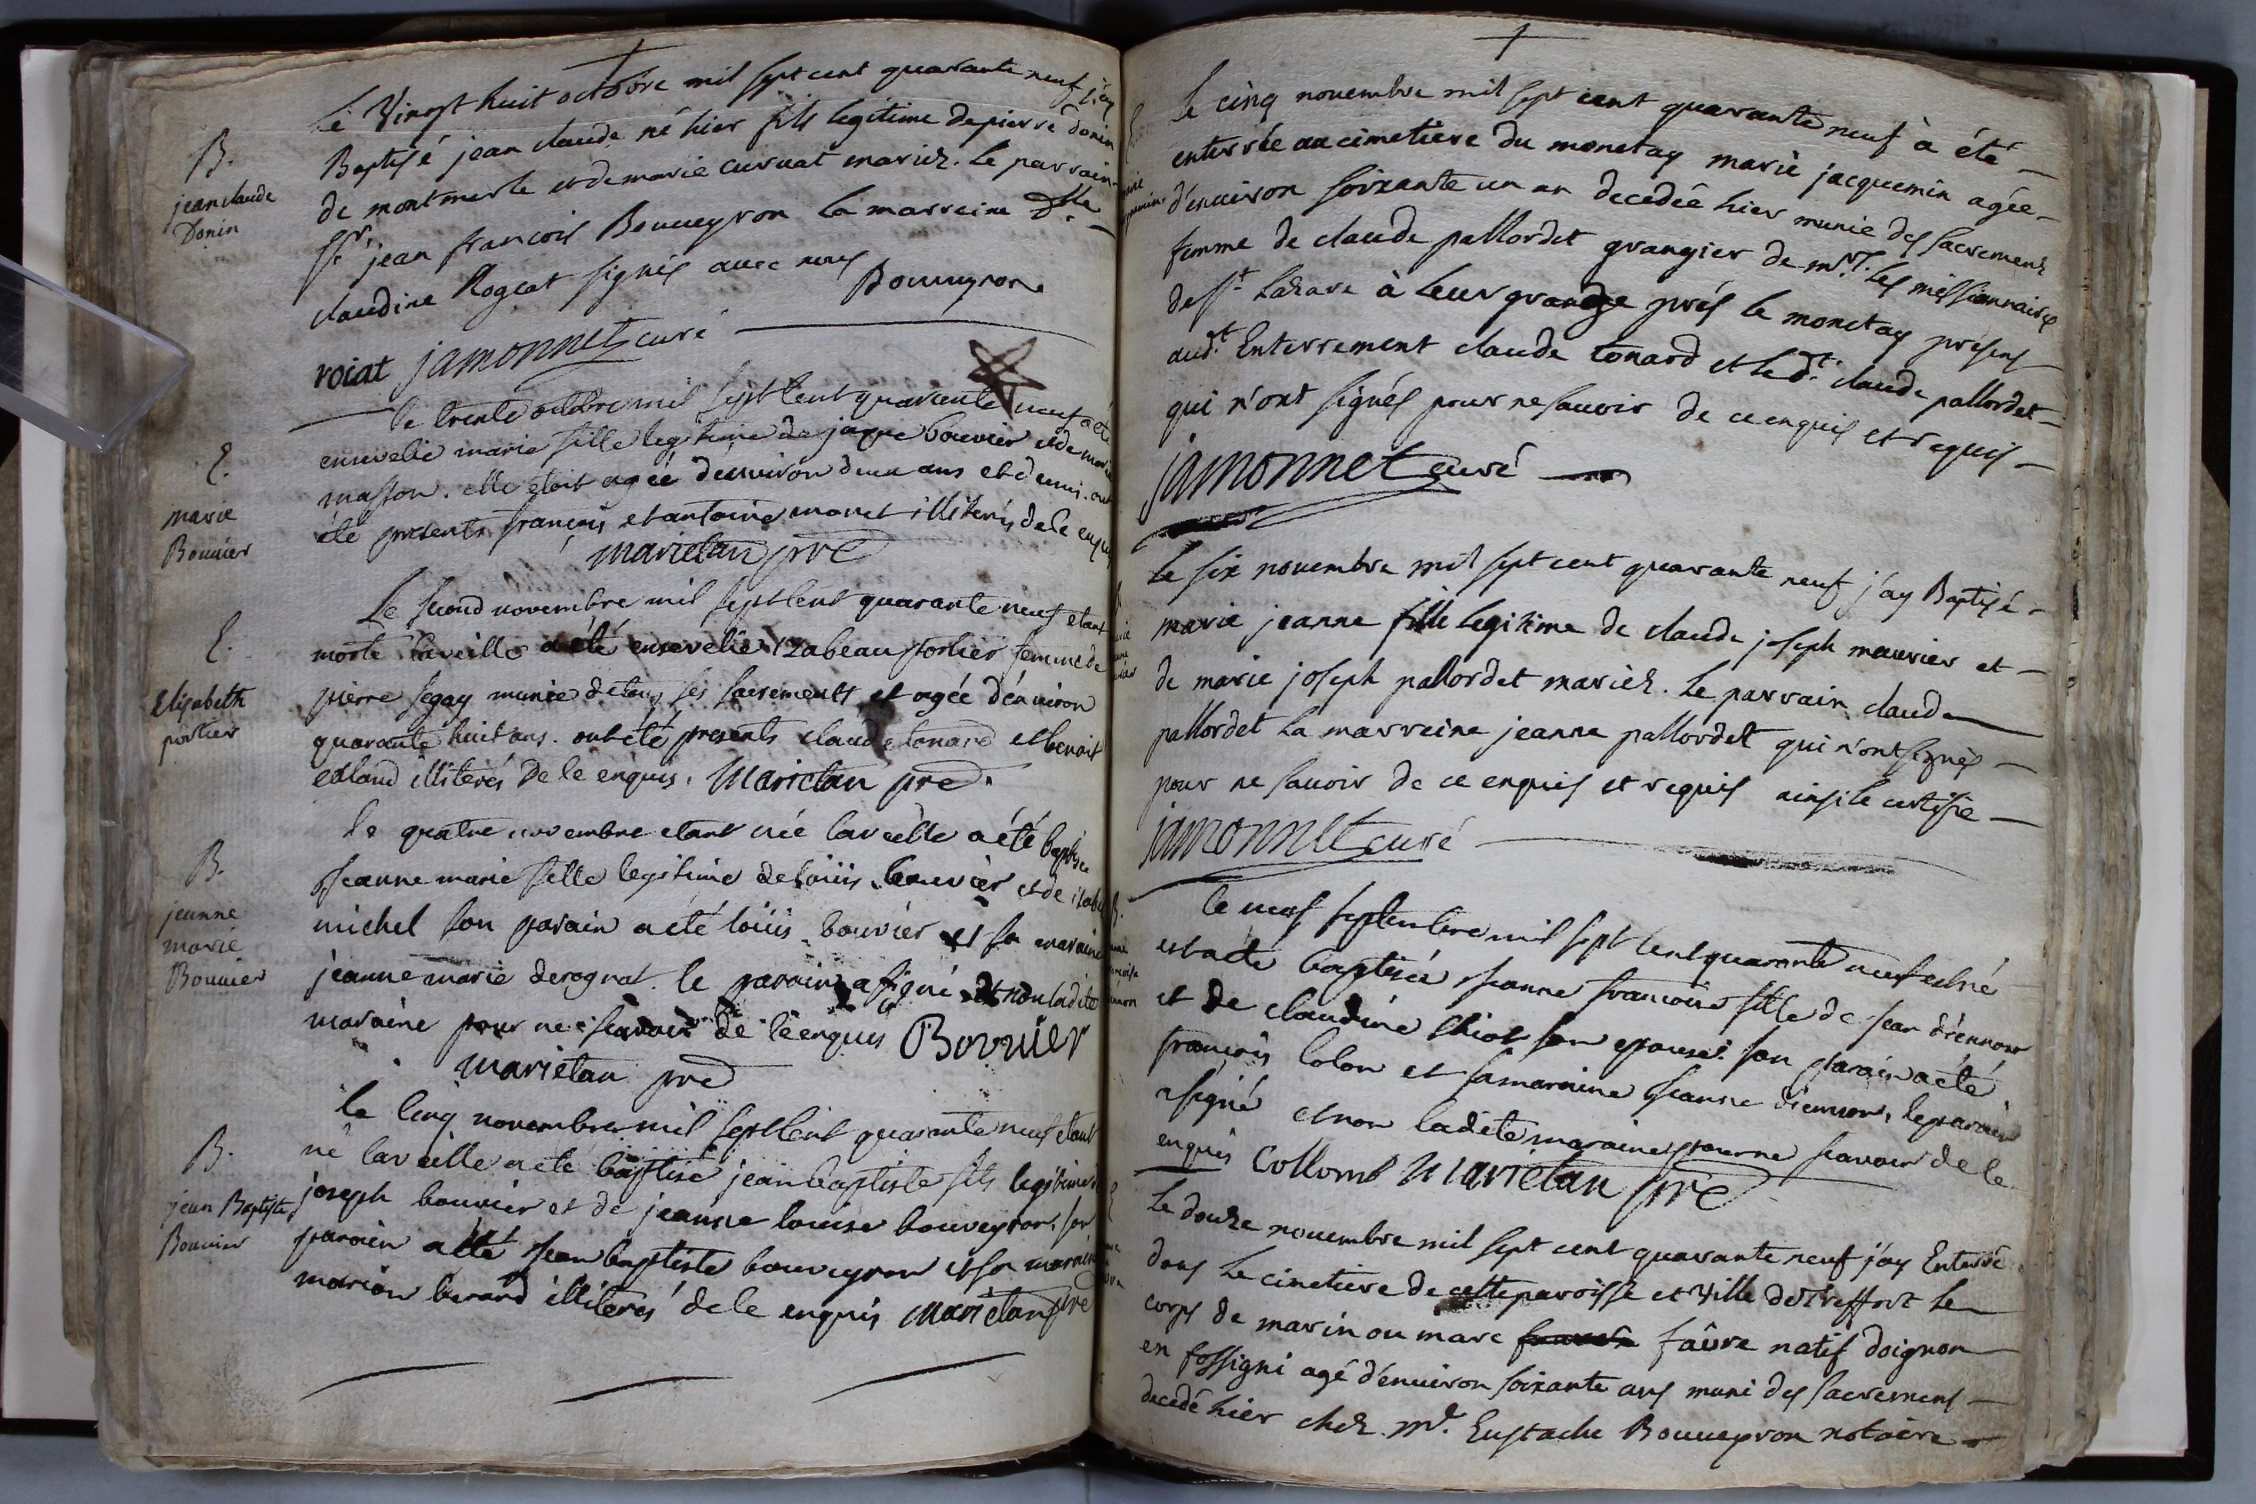 Le Vingt huit octobre mil sept cent quarante neuf j'ey
B. Baptisé jean claude né hier fils legitime de pierre donin
jean claude Donin
de montmerle et de marie curvat mariez. Le parrain
Sr. jean francois Bouveyron la marreine Dlle
claudine Rogeat signés avec nous Bouveyron
roiat jamonnet curé
le trente octobre mil sept cent quarante neuf a été
E. marie Bouvier
ensevelie marie fille legitime de jaque bouvier et de marie
masson. elle étoit agée d'environ deux ans et demi. ont
été presents françois et antoine monet illiterés de le enquis
marietan pre
Le second novembre mil sept cent quarante neuf etant
E. Elisabeth portier
morte la veille a été ensevelie izabeau portier femme de
pierre segay munie de tous ses sacrements et agée d'environ
quarante huit ans. ont été presents claude tonard et benoit
illiterés de le enquis. Marietan pre.
le quatre novembre etant née la veille a été baptisée
B. jeanne marie Bouvier
jeanne marie fille legitime de loüis bouvier et de
michel son parain a eté loüis bouvier et sa maraine
jeanne marie derognat. le parain a signé et non ladite
maraine pour ne scavoir de le enquis Bouvier
marietan pre
le cinq novembre mil sept cent quarante neuf etant
B. jean Baptiste Bouvier
né la veille a eté baptisé jean baptiste fils legitime
joseph bouvier et de jeanne louise bouveyron. son
parain a eté jean baptiste bouveyron et sa maraine
marion berard illiterés de le enquis Marietan pre
Le cinq novembre mil sept cent quarante neuf à été
enterrée au cimetiere du monetay marie jacquemin agée
d'environ soixante un an decedée hier munie des sacremens
femme de claude pallordet grangier de mrs. les missionnaires
de st. Lazare à leur grange prés le monetay presens
audt. Enterrement claude tonard et ledt. claude pallordet
qui n'ont signés pour ne scavoir de ce enquis et requis
jamonnet curé
Le six novembre mil sept cent quarante neuf j'ay Baptisé
marie jeanne fille legitime de claude joseph meurier et
de marie joseph pallordet mariez. Le parrain claude
pallordet la marreine jeanne pallordet qui n'ont signés
pour ne scavoir de ce enquis et requis ainsi le certifie
jamonnet curé
le neuf septembre mil sept cent quarante neuf est né
et a eté baptisée jeanne francoise fille de jean
et de claudine son epouse. son parain a eté
francois Colon et sa maraine jeanne le parain
a signé et non ladite maraine pour ne scavoir de le
enquis Collomb Marietan pre
Le douze novembre mil sept cent quarante neuf j'ay Enterré
dans le cimetiere de cette paroisse et ville de treffort le
corps de marin ou marc faûre natif d'oignon
en fossigni agé d'environ soixante ans muni des sacremens
decedé hier chez me. Eustache Bouveyron notaire